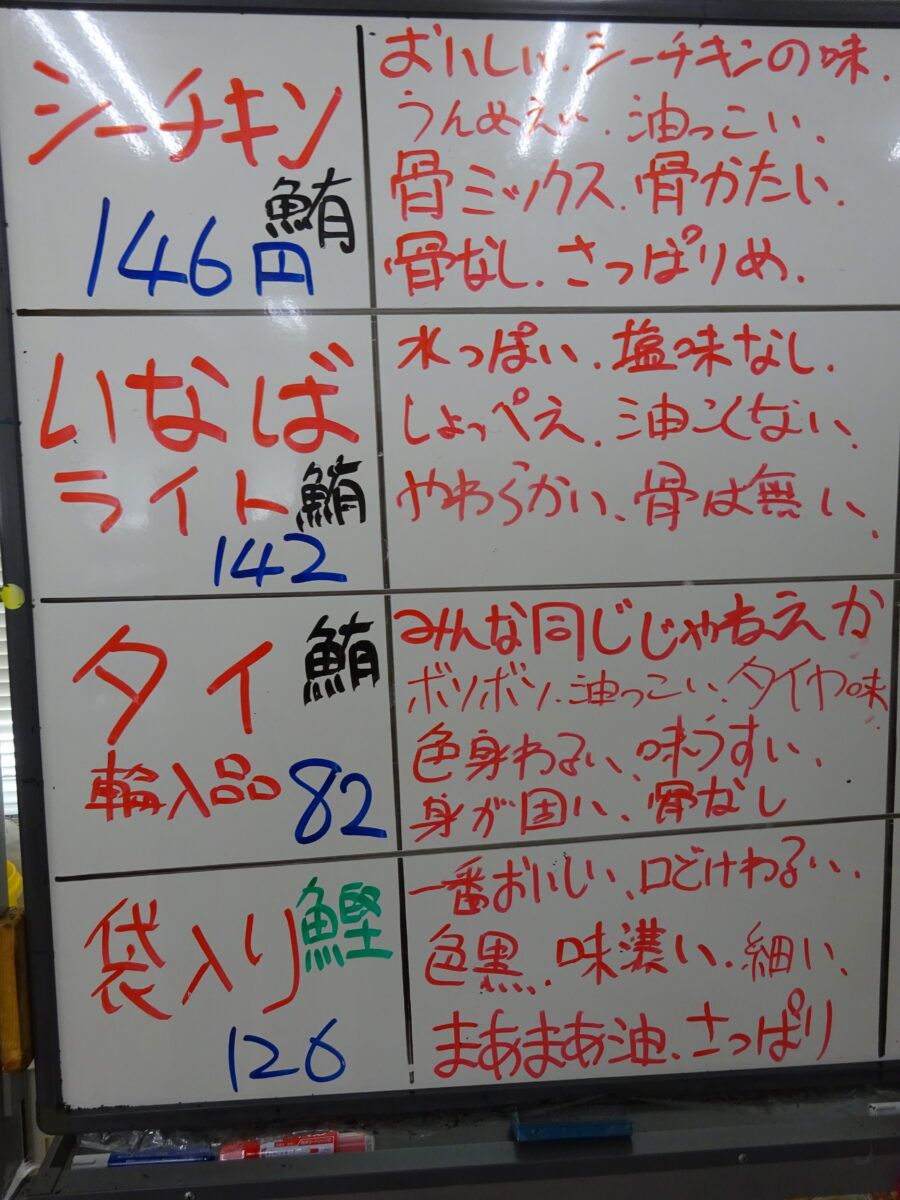 シーチキン
鮪
146円
おいしい、シーチキンの味、
うんめえぃ、油っこい、
骨ミックス、骨かたい、
骨なし、さっぱりめ、
いなば
ライト鮪
142
水っぽい、塩味なし、
しょっぺえ、油こくない、
やわらかい、骨は無い、
タイ鮪
輸入品82
みんな同じじゃねえか
ボソボソ、油っこい、タイヤ味
色身わるい、味うすい、
身が固い、骨なし
袋入り鰹
126
一番おいしい、口どけわるい、
色黒、味濃い、細い、
まあまあ油、さっぱり